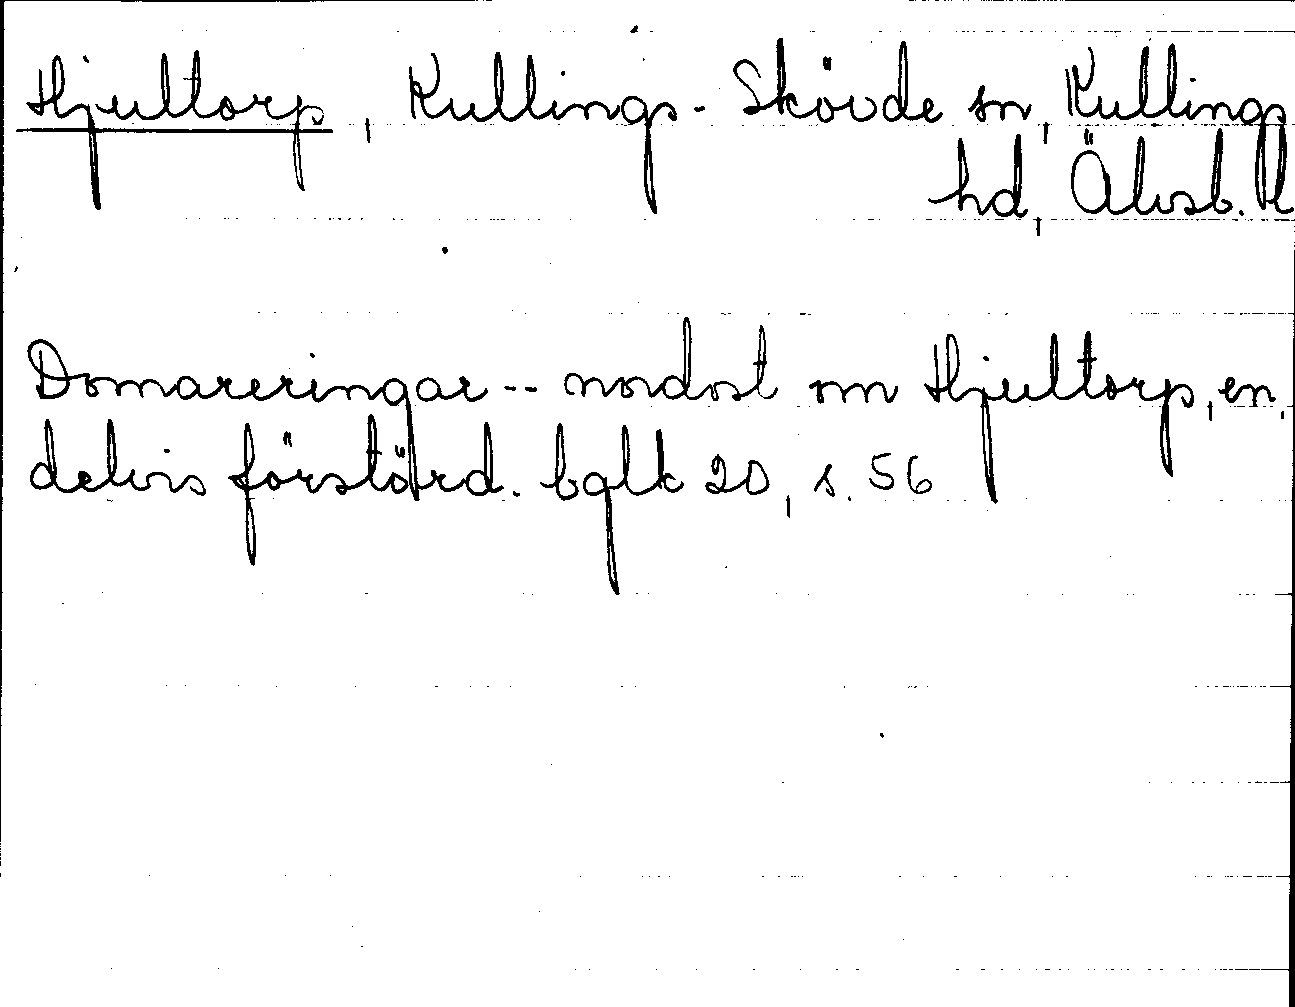 Hjultorp, Kullings-Skövde sn, Kullings
hd, Älvsb. l
Domareringar -- nordost om Hjultorp, en
delvis förstörd. bglk 20, s. 56